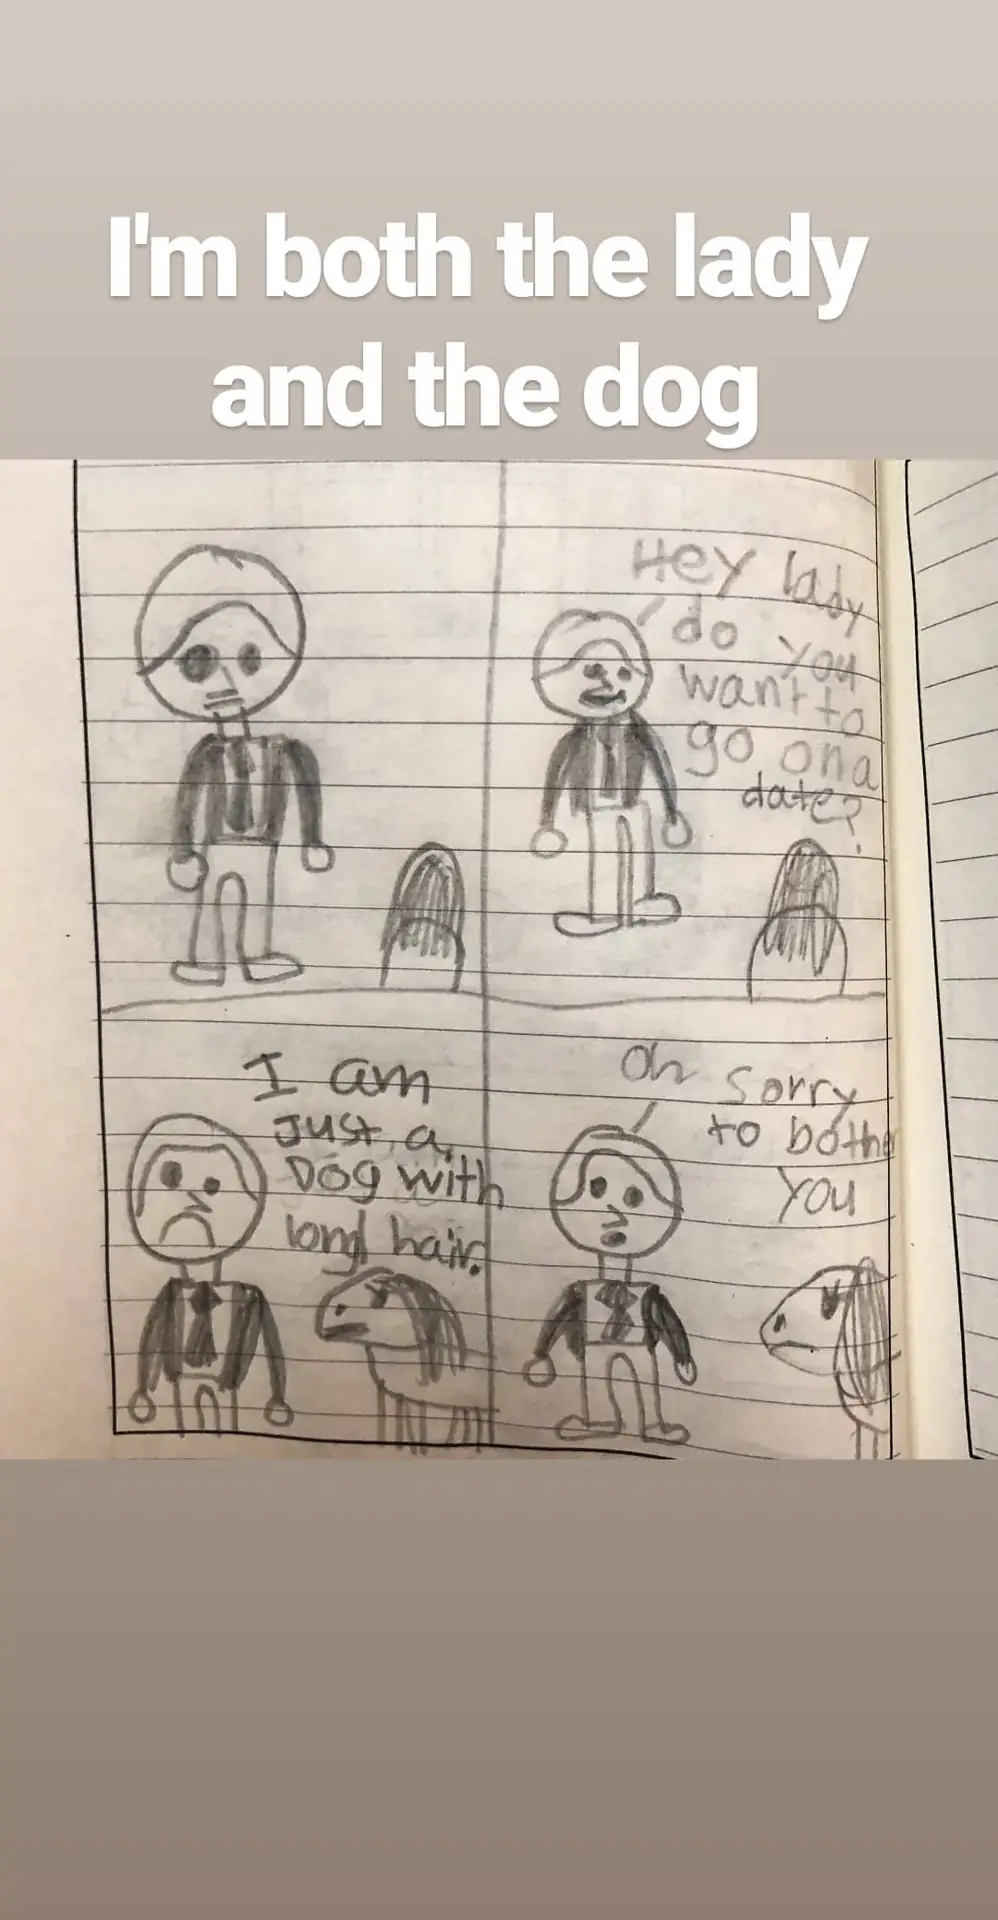 I'm both the lady
and the dog
Hey lady
do you
want to
go on a
date?
I am
Just a
Dog with
long hair.
Oh sorry
to bother
you